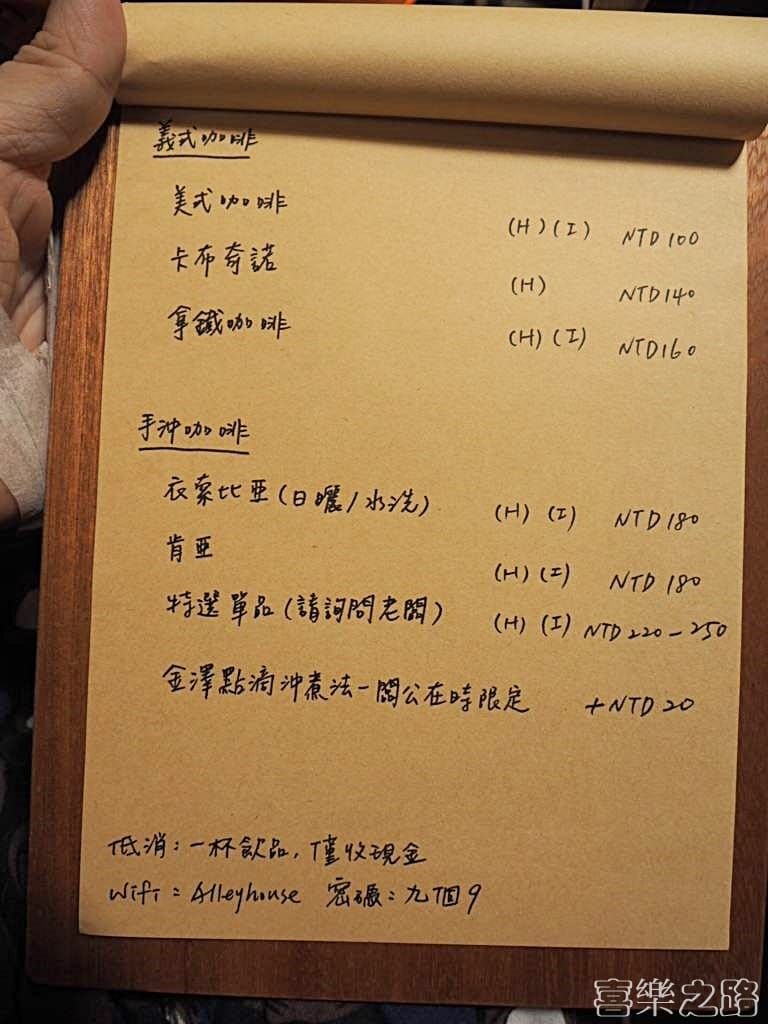 義式咖啡
美式咖啡 (H) (I) NTD 100
卡布奇諾 (H) NTD 140
拿鐵咖啡 (H) (I) NTD 160
手沖咖啡
衣索比亞 (日曬/水洗) (H) (I) NTD 180
肯亞 (H) (I) NTD 180
特選單品 (請詢問老闆) (H) (I) NTD 220-250
金澤點滴沖煮法-闆公在時限定 +NTD 20
低消:一杯飲品,僅收現金
Wifi:Alleyhouse 密碼:九個9
喜樂之路